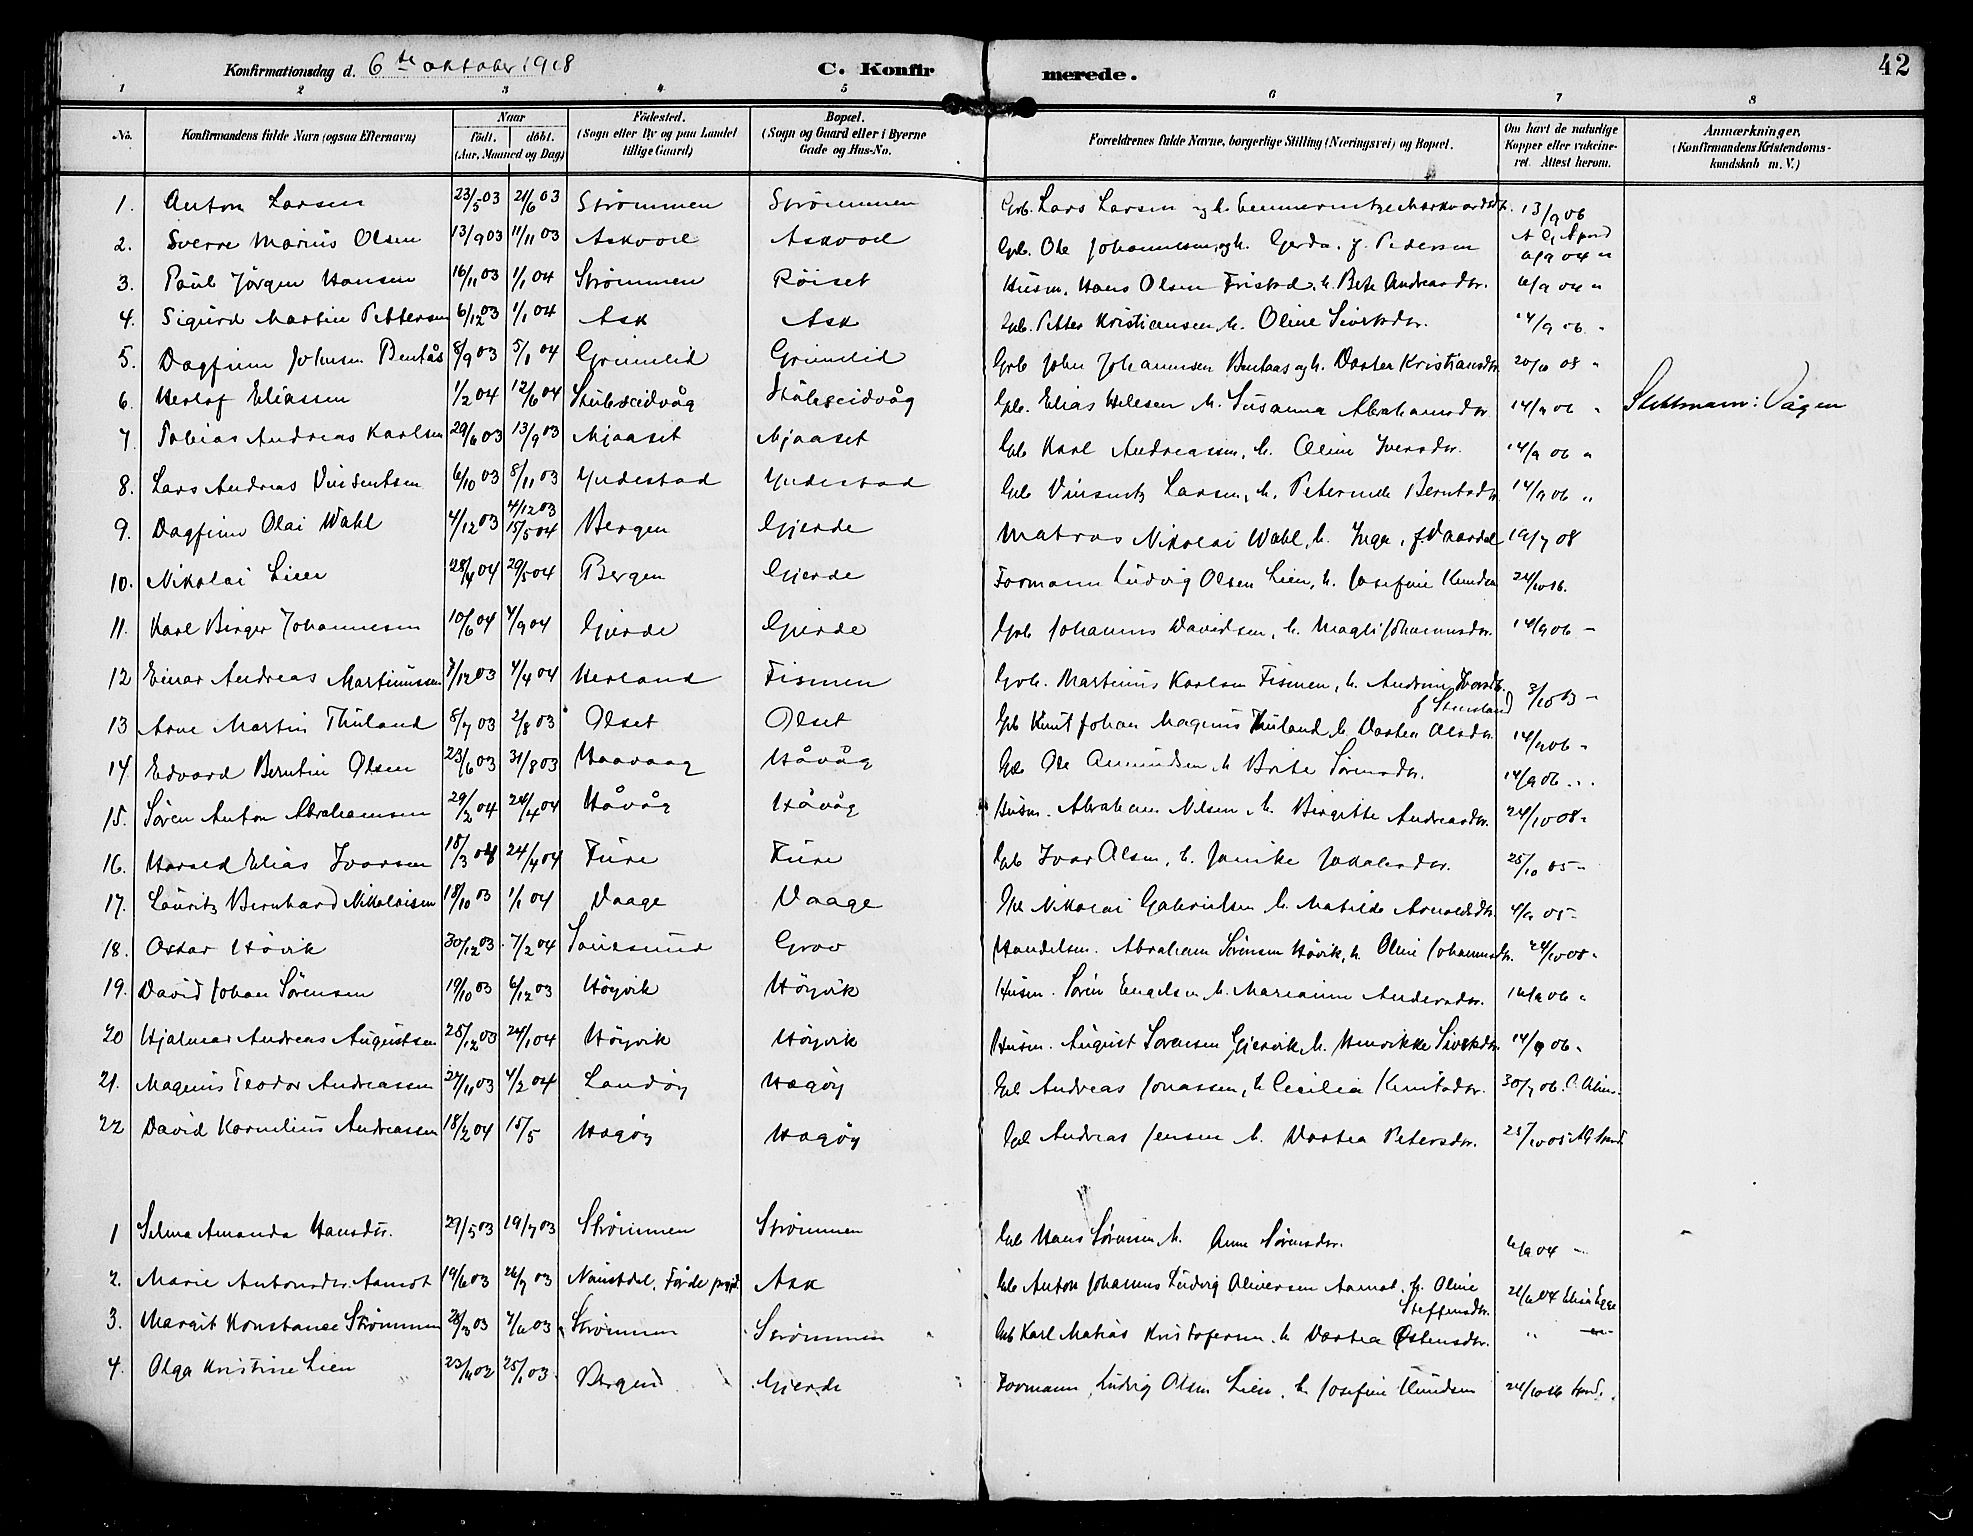 Konfirmationsdag d. 6te oktober 1918 C. Konfir merede. 42
1 2 3 4 5 6 7 8
No. Konfirmandens fulde Navn (ogsaa Efternavn) Naar Födested. Bopæl. Forældrenes fulde Navne, borgerlige Stilling (Næringsvei) og Bopæl. Om havt de naturlige Anmærkninger,
födt. döbt. (Sogn eller By og paa Landet (Sogn og Gaard eller i Byerne Kopper eller vakcine- (Konfirmandens Kristendoms-
(Aar, Maaned og Dag) tillige Gaard) Gade og Hus-No. ret. Attest herom. kundskab m. V.)
1. Anton Larsen 23/5 03 21/6 03 Strömmen Strömmen Grb. Lars Larsen og h. 13/9 06
2. Sverre Marius Olsen 13/9 03 11/11 03 Askvoll Askvoll Gbr. Ole Johannesen og h. Gerda f. Pedersen
3. Paul Jørgen Hansen 16/11 03 1/1 04 Strömmen Röiset Husm. Hans Olsen h. Berte Andreasdtr.
4. Sigurd Martin Pettersen 6/12 03 1/1 04 Ask Ask Petter Kristiansen, h. Oline Sivertsdtr. 14/9 06 "
5. Dagfinn Johnsen Bentås 8/9 03 5/1 04 Grimelid Grimelid Grb John Johannsen Bentaas og h. Dortea Kristiansdtr. 20/10 08 "
6. Herlof Eliassen 1/2 04 12/6 04 Stubseidvåg Stubseidvåg Elias h. Susanna Abrahamsdtr. 14/9 06 " Vågen
7. Tobias Andreas Karlsen 29/6 03 13/9 03 Mjaaset Mjaaset Karl Andreassen, h. Oline Iversdtr. 14/9 06 "
8. Lars Andreas Vinsentsen 6/10 03 8/11 03 Yndestad Yndestad Vinsents Larsen, h. Berntsdtr. 14/9 06 "
4/12 03
9. Dagfinn Olai Wahl 4/12 03 15/5 04 Bergen Gjerde Matros Nikolai Wahl, h. Inga, f. 19/7 08
10. Nikolai Lien 28/4 04 29/5 04 Bergen Gjerde Formann Ludvig Olsen Lien, h. Josefine Knudsen 24/10 16.
11. Karl Birger Johannesen 10/6 04 4/9 04 Gjerde Gjerde Johannes Davidsen, h. Magli Johannesdtr. 14/9 06 -
12 Einar Andreas Martinussen 7/12 03 4/4 04 Herland Fismen Martinus Karlsen Fismen, h. Andrine
3/10 13 -
13 Arne Martin Thuland 8/7 03 2/8 03 Olset Olset Knut Johan Magnus Thuland h. Dortea Olsdtr. 14/9 06 -
14. Edvard Berntin Olsen 23/6 03 31/8 03 Haavaag Håvåg Ole Amundsen h. Brite Sørensdtr. 14/9 06
15. Søren Anton Abrahamsen 29/2 04 24/4 04 Håvåg Håvåg Husm. Abraham Nilsen h. Birgitte Andreasdtr. 24/10 08 "
16. Harald Elias Ivarsen 18/3 04 24/4 04 Fure Fure Ivar Olsen, h. Janike Jakobsdtr. 25/10 05 -
17. Lauritz Bernhard Nikolaisen 18/10 03 1/1 04 Vaage Vaage Nikolai Gabrielsen h. Matilde
18. Oskar Hövik 30/12 03 7/2 04 Sauesund Grov Handelsm. Abraham Sörensen Hövik, h. Oline Johannesdtr. 24/10 08 "
19. David Johan Sörensen 19/10 03 6/12 03 Höyvik Höyvik Husm. Sören Engelsen h. Marianne Andersdtr. 14/9 06 "
20 Hjalmar Andreas Augustsen 25/12 03 24/1 04 Höyvik Höyvik Husm. August Sorensen h. Henrikke Sivertsdtr. 14/9 06 "
21. Magnus Teodor Andreassen 27/11 03 4/2 04 Landöy Hagöy Andreas Jonassen, h Cecilia Knutsdtr. 30/7 06.
22 David Kornelius Andreassen 18/2 04 15/5 Hagöy Hagöy Andreas Jensen h. Dortea Petersdtr.
1 Selma Amanda Hansdtr. 29/5 03 19/7 03 Strömmen Strömmen Hans Sörensen h. Anne Sörensdtr.
2. Marie Antonsdtr. Aamot 19/6 03 26/7 03 Naustdal, Förde Ask Anton Johannes Ludvig Oliversen Aamot, h. Oline
Steffensdtr.
3. Margit Konstanse Strömmen Strömmen Strömmen Karl Matias Kristofersen, h Dortea Östensdtr. "
4. Olga Kristine Lien 23/11 02 25/1 03 Bergen Gjerde Formann Ludvig Olsen Lien, h. Josefine Knudsen 24/10 16